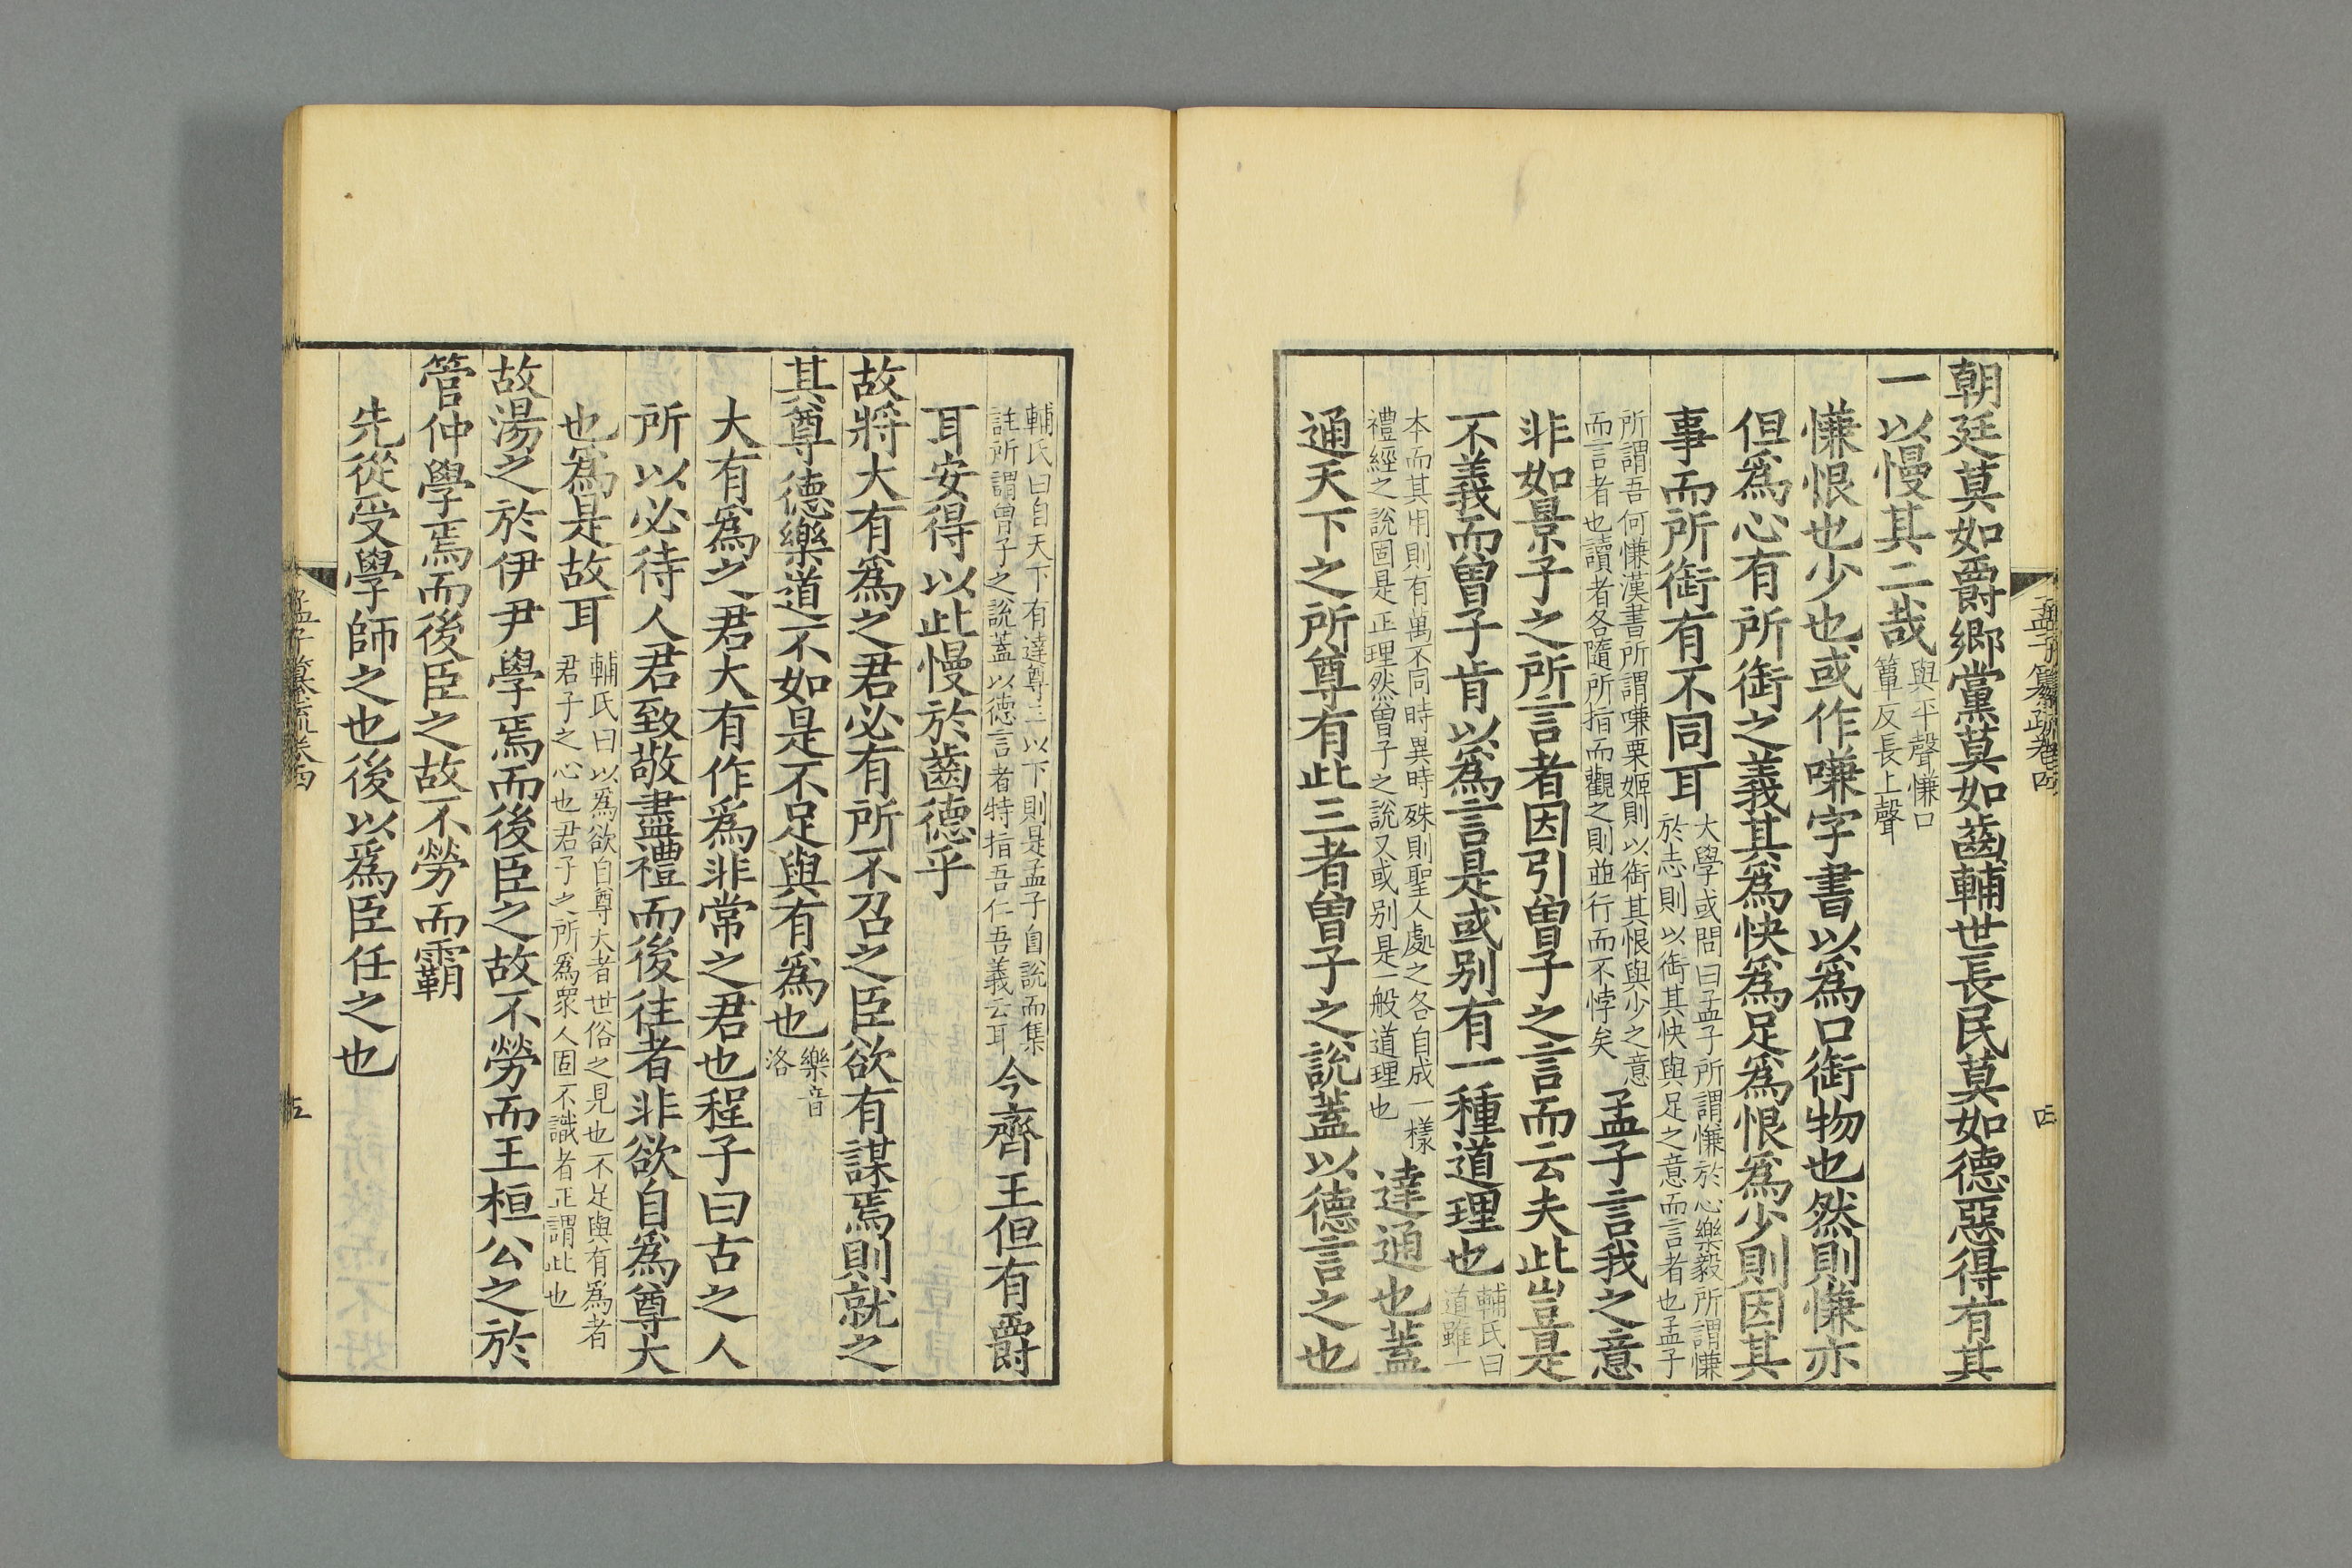 孟子纂疏卷四
四
朝廷莫如爵鄉黨莫如齒輔世長民莫如德惡得有其
一以慢其二哉
與平聲慊口
簟反長上聲
慊恨也少也或作嗛字書以爲口銜物也然則慊亦
但爲心有所銜之義其爲快爲足爲恨爲少則因其
事而所銜有不同耳
大學或問曰孟子所謂慊於心樂毅所謂慊
於志則以銜其快與足之意而言者也孟子
所謂吾何慊漢書所謂嗛栗姬則以銜其恨與少之意
而言者也讀者各隨所指而觀之則並行而不悖矣
孟子言我之意
非如景子之所言者因引曾子之言而云夫此豈是
不義而曾子肯以爲言是或别有一種道理也
輔氏曰
道雖一
本而其用則有萬不同時異時殊則聖人處之各自成一樣
禮經之說固是正理然曾子之說又或别是一般道理也
達通也蓋
通天下之所尊有此三者曾子之說蓋以德言之也
輔氏曰自天下有達尊三以下則是孟子自說而集
註所謂曾子之說蓋以德言者特指吾仁吾義云耳
今齊王但有爵
耳安得以此慢於齒德乎
故將大有爲之君必有所不召之臣欲有謀焉則就之
其尊德樂道不如是不足與有爲也
樂音
洛
大有爲之君大有作爲非常之君也程子曰古之人
所以必待人君致敬盡禮而後往者非欲自爲尊大
也爲是故耳
輔氏曰以爲欲自尊大者世俗之見也不足與有爲者
君子之心也君子之所爲眾人固不識者正謂此也
故湯之於伊尹學焉而後臣之故不勞而王桓公之於
管仲學焉而後臣之故不勞而霸
先從受學師之也後以爲臣任之也
孟子纂疏卷四
五